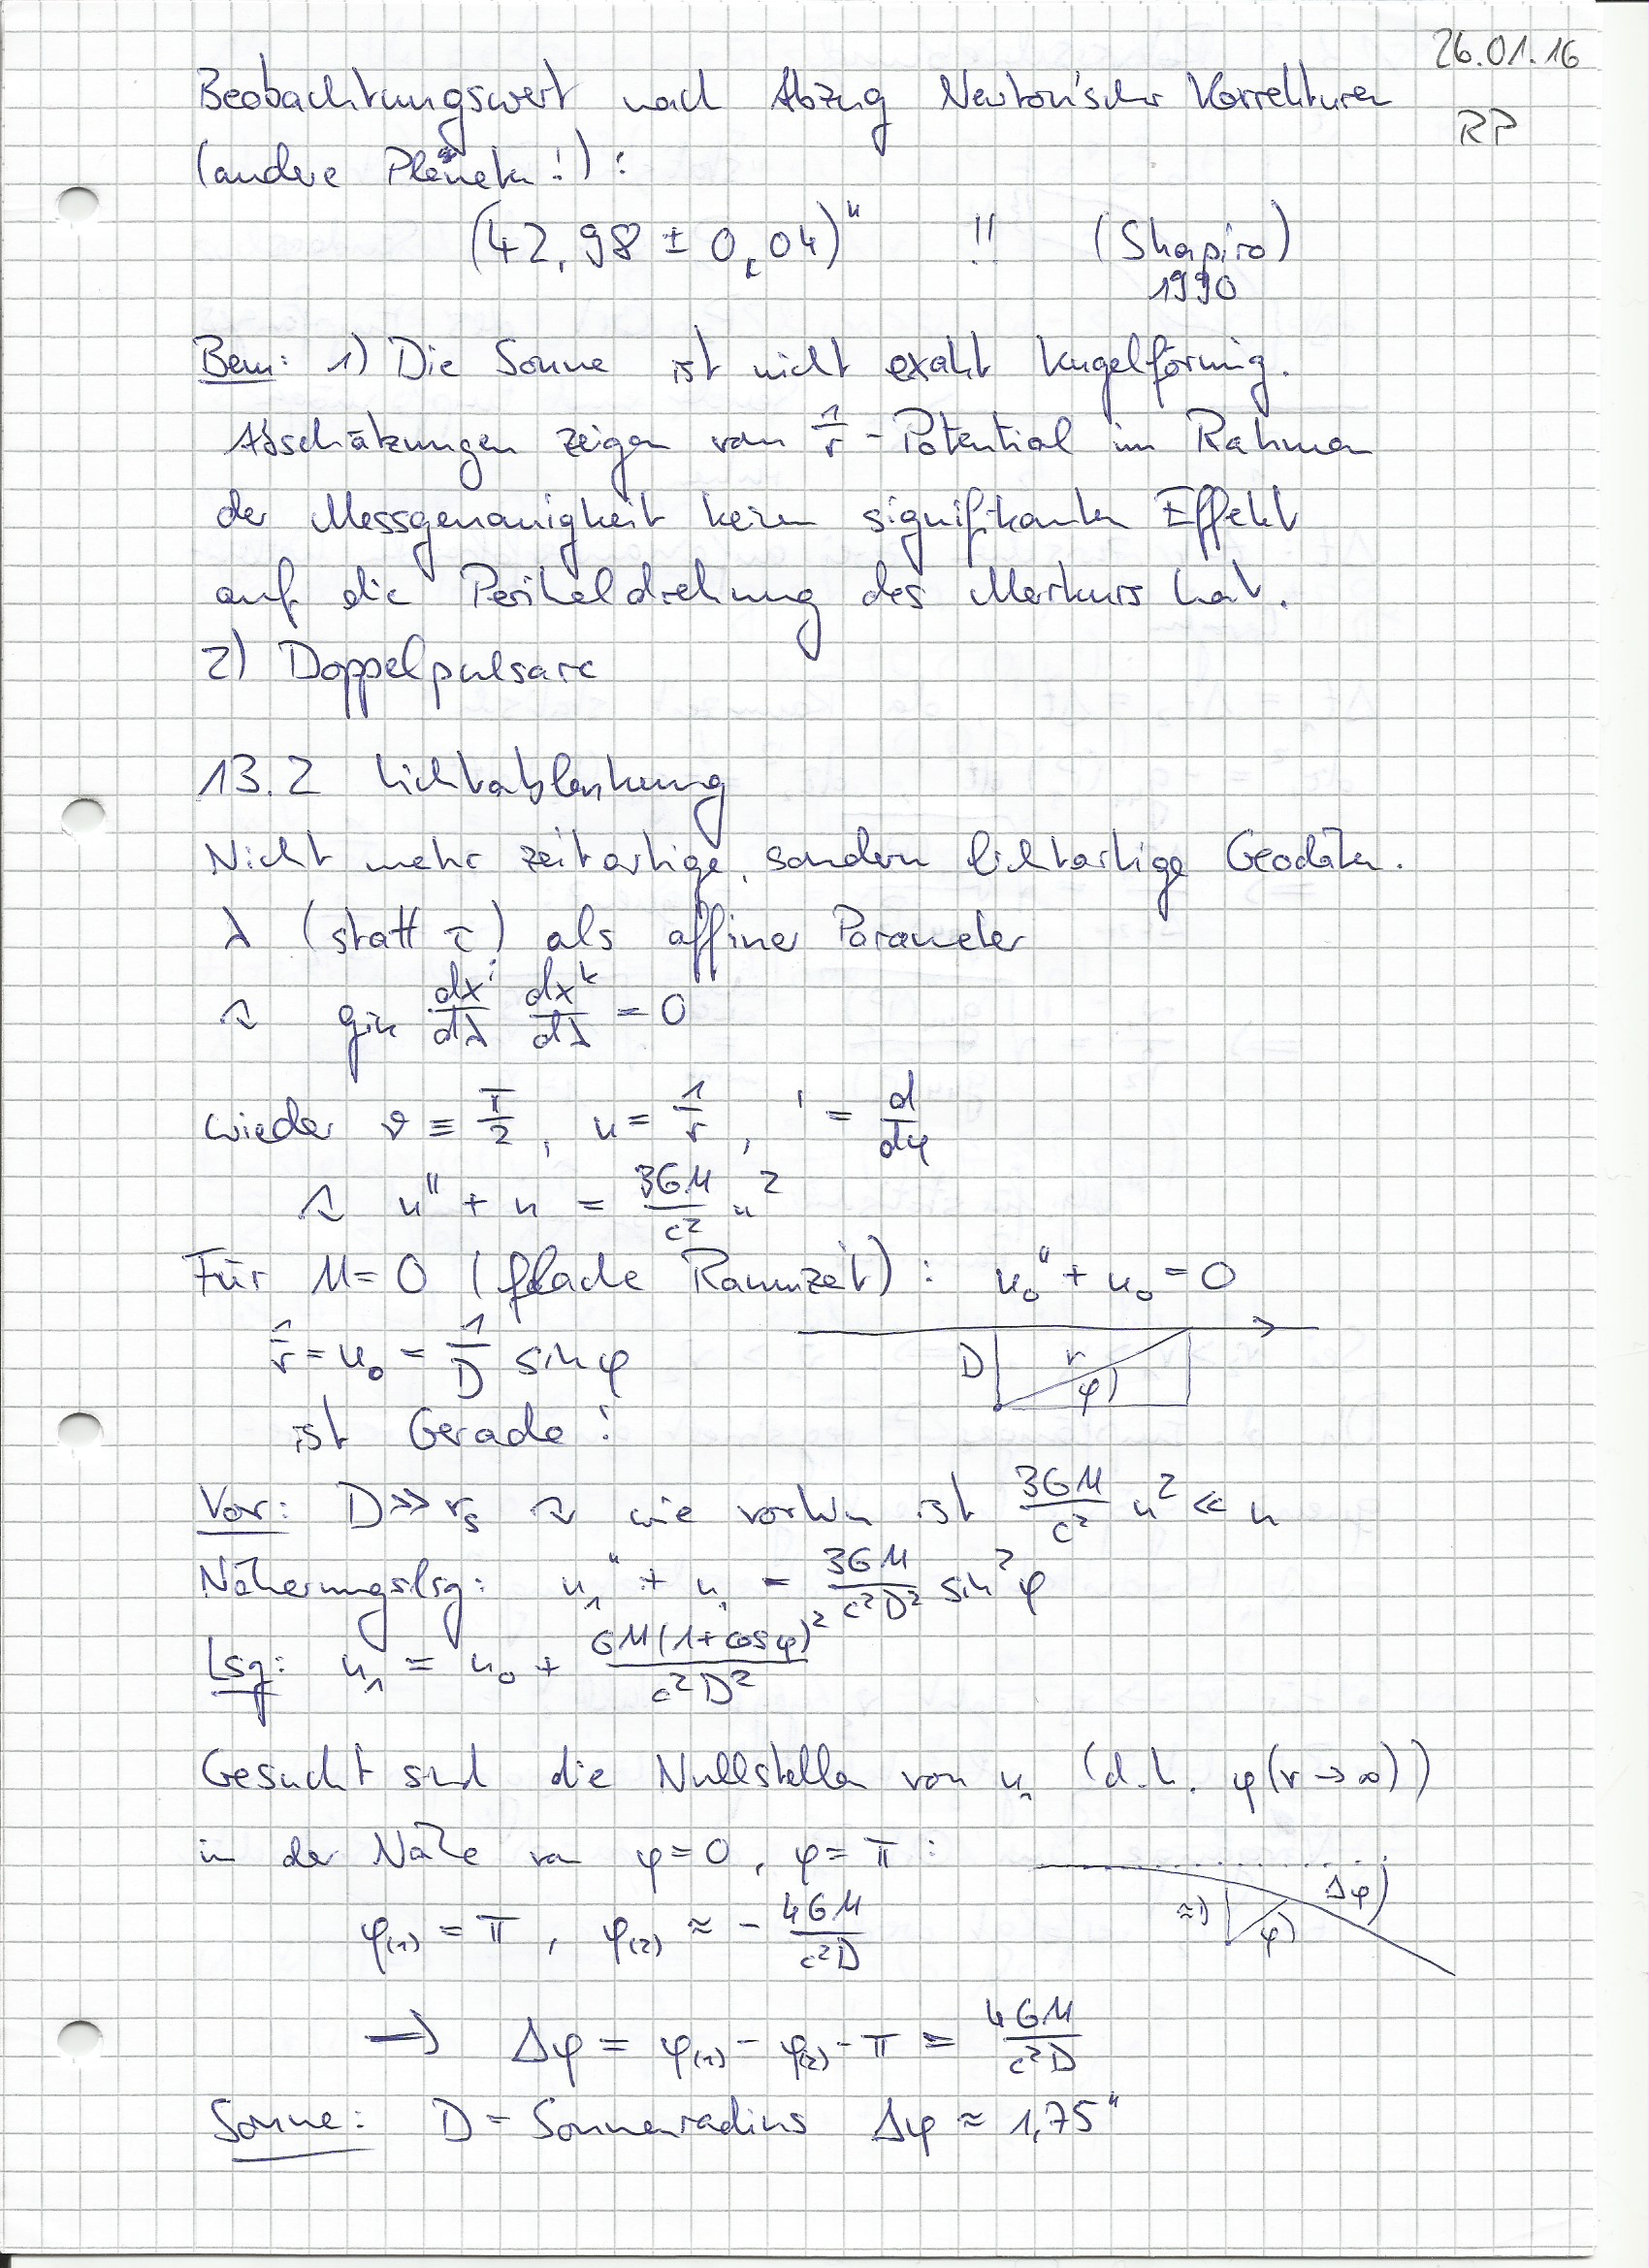 26.01.16
RP
Beobachtungswert nach Abzug Newton'scher Korrekturen
(andere Planeten!):
(42,98 ± 0,04)" !! (Shapiro)
1990
Bem: 1) Die Sonne ist nicht exakt kugelförmig.
Abschätzungen zeigen vom 1/r - Potential im Rahmen
der Messgenauigkeit keinen signifikanten Effekt
auf die Periheldrehung des Merkurs hat.
2) Doppelpulsare
13.2 Lichtablenkung
Nicht mehr zeitartige, sondern lichtartige Geodäten.
λ (statt τ) als affiner Parameter
↷ g_ik dx^i/dλ dx^k/dλ = 0
wieder ϑ ≡ π/2, u = 1/r, ' = d/dφ
↷ u'' + u = 3GM/c² u²
Für M = 0 (flache Raumzeit): u₀'' + u₀ = 0
1/r = u₀ = 1/D sin φ
D r φ
ist Gerade!
Vor: D >> r_s ↷ wie vorhin ist 3GM/c² u² << u
Näherungslsg: u₁'' + u₁ = 3GM/c²D² sin² φ
Lsg: u₁ = u₀ + GM(1+cos φ)²/c²D²
Gesucht sind die Nullstellen von u₁ (d.h. φ(r→∞))
in der Nähe von φ = 0, φ = π:
≈D φ Δφ
φ₍₁₎ = π, φ₍₂₎ ≈ - 4GM/c²D
→ Δφ = φ₍₁₎ - φ₍₂₎ - π = 4GM/c²D
Sonne: D = Sonnenradius Δφ ≈ 1,75"